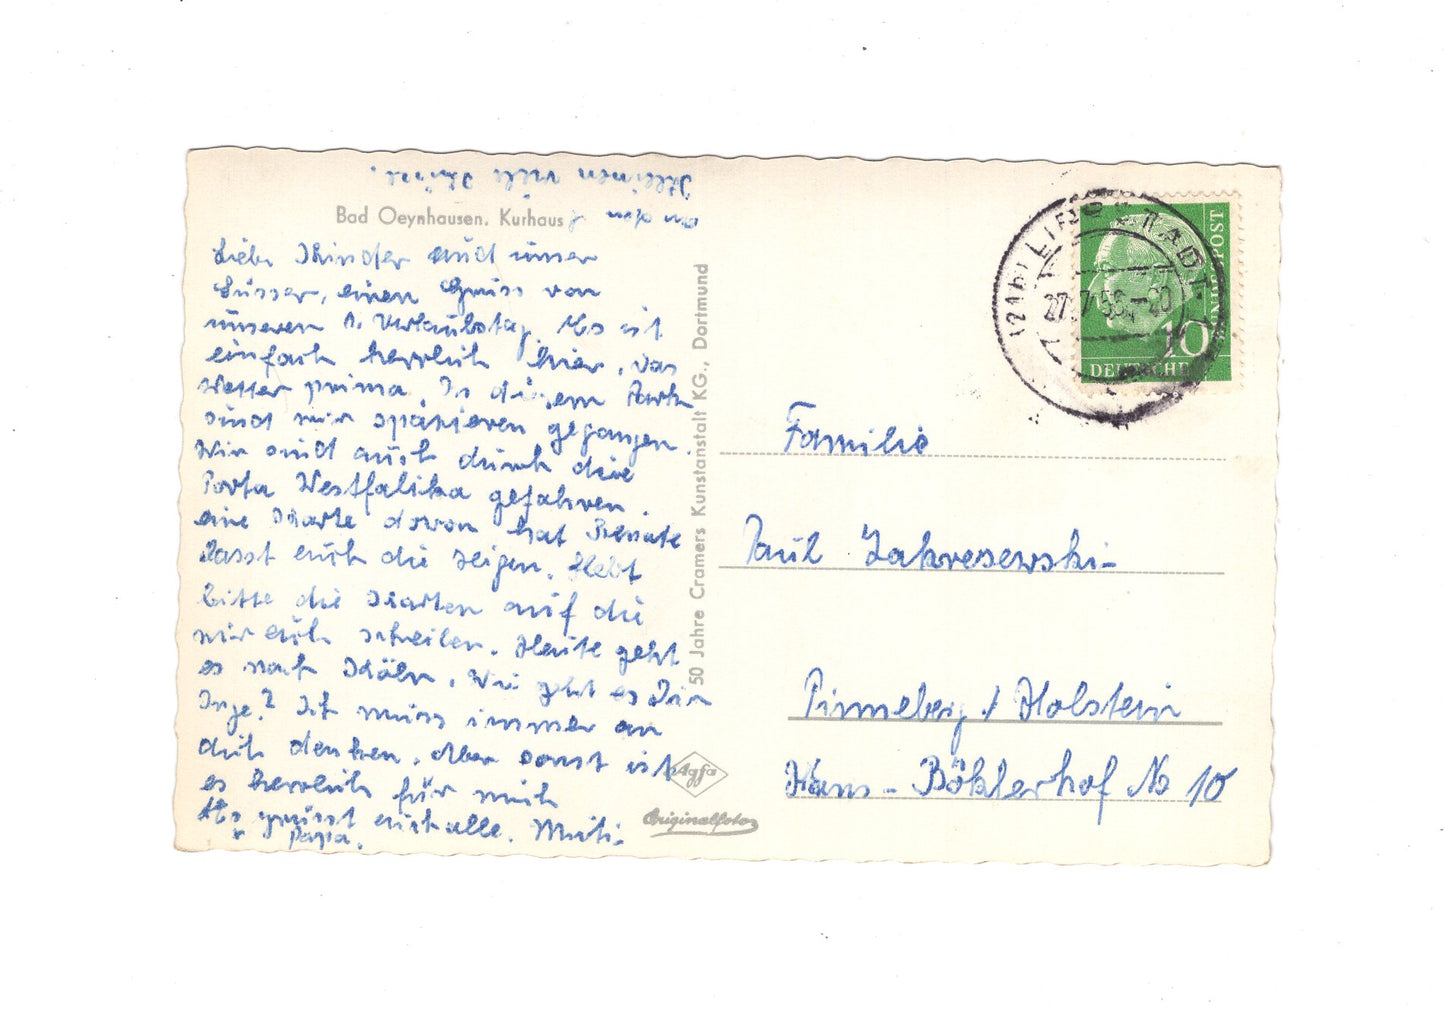 Bad Oeynhausen. Kurhaus
Liebe Kinder und unser
Süsser, einen Gruss von
unseren 1. Urlaubstag. Es ist
einfach herrlich hier, das
Wetter prima. In diesem Park
sind wir spazieren gegangen.
Wir sind auch durch die
Porta Westfalika gefahren.
eine Karte davon hat Renate
lasst euch die zeigen. Hebt
bitte die Karten auf die
wir euch schreiben. Heute geht
es nach Köln. Wie geht es Dir
Inge? Ich muss immer an
dich denken. Aber sonst ist
es herrlich für mich
Es grüsst euch alle. Mutti
u Papa.
an den
Kleinen viele Küsse.
50 Jahre Cramers Kunstanstalt KG., Dortmund
Agfa
Originalfoto
(21b) LIPPSTADT
27.7.56.-20
DEUTSCHE BUNDESPOST
10
Familie
Paul Zakresewski-
Pinneberg / Holstein
Hans-Böklerhof No 10